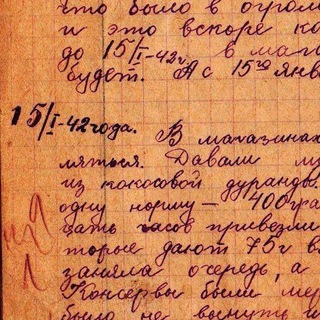 что было в огром
и это вскоре ко
до 15/I-42г. в мага
будет. А с 15го янв
15/I-42года. В магазинах
мяться. Давали
из кокосовой дуранды.
одну норму — 400гра
цать часов привезли
торые дают 75г в
заняла очередь, а
Консервы были мер
было не